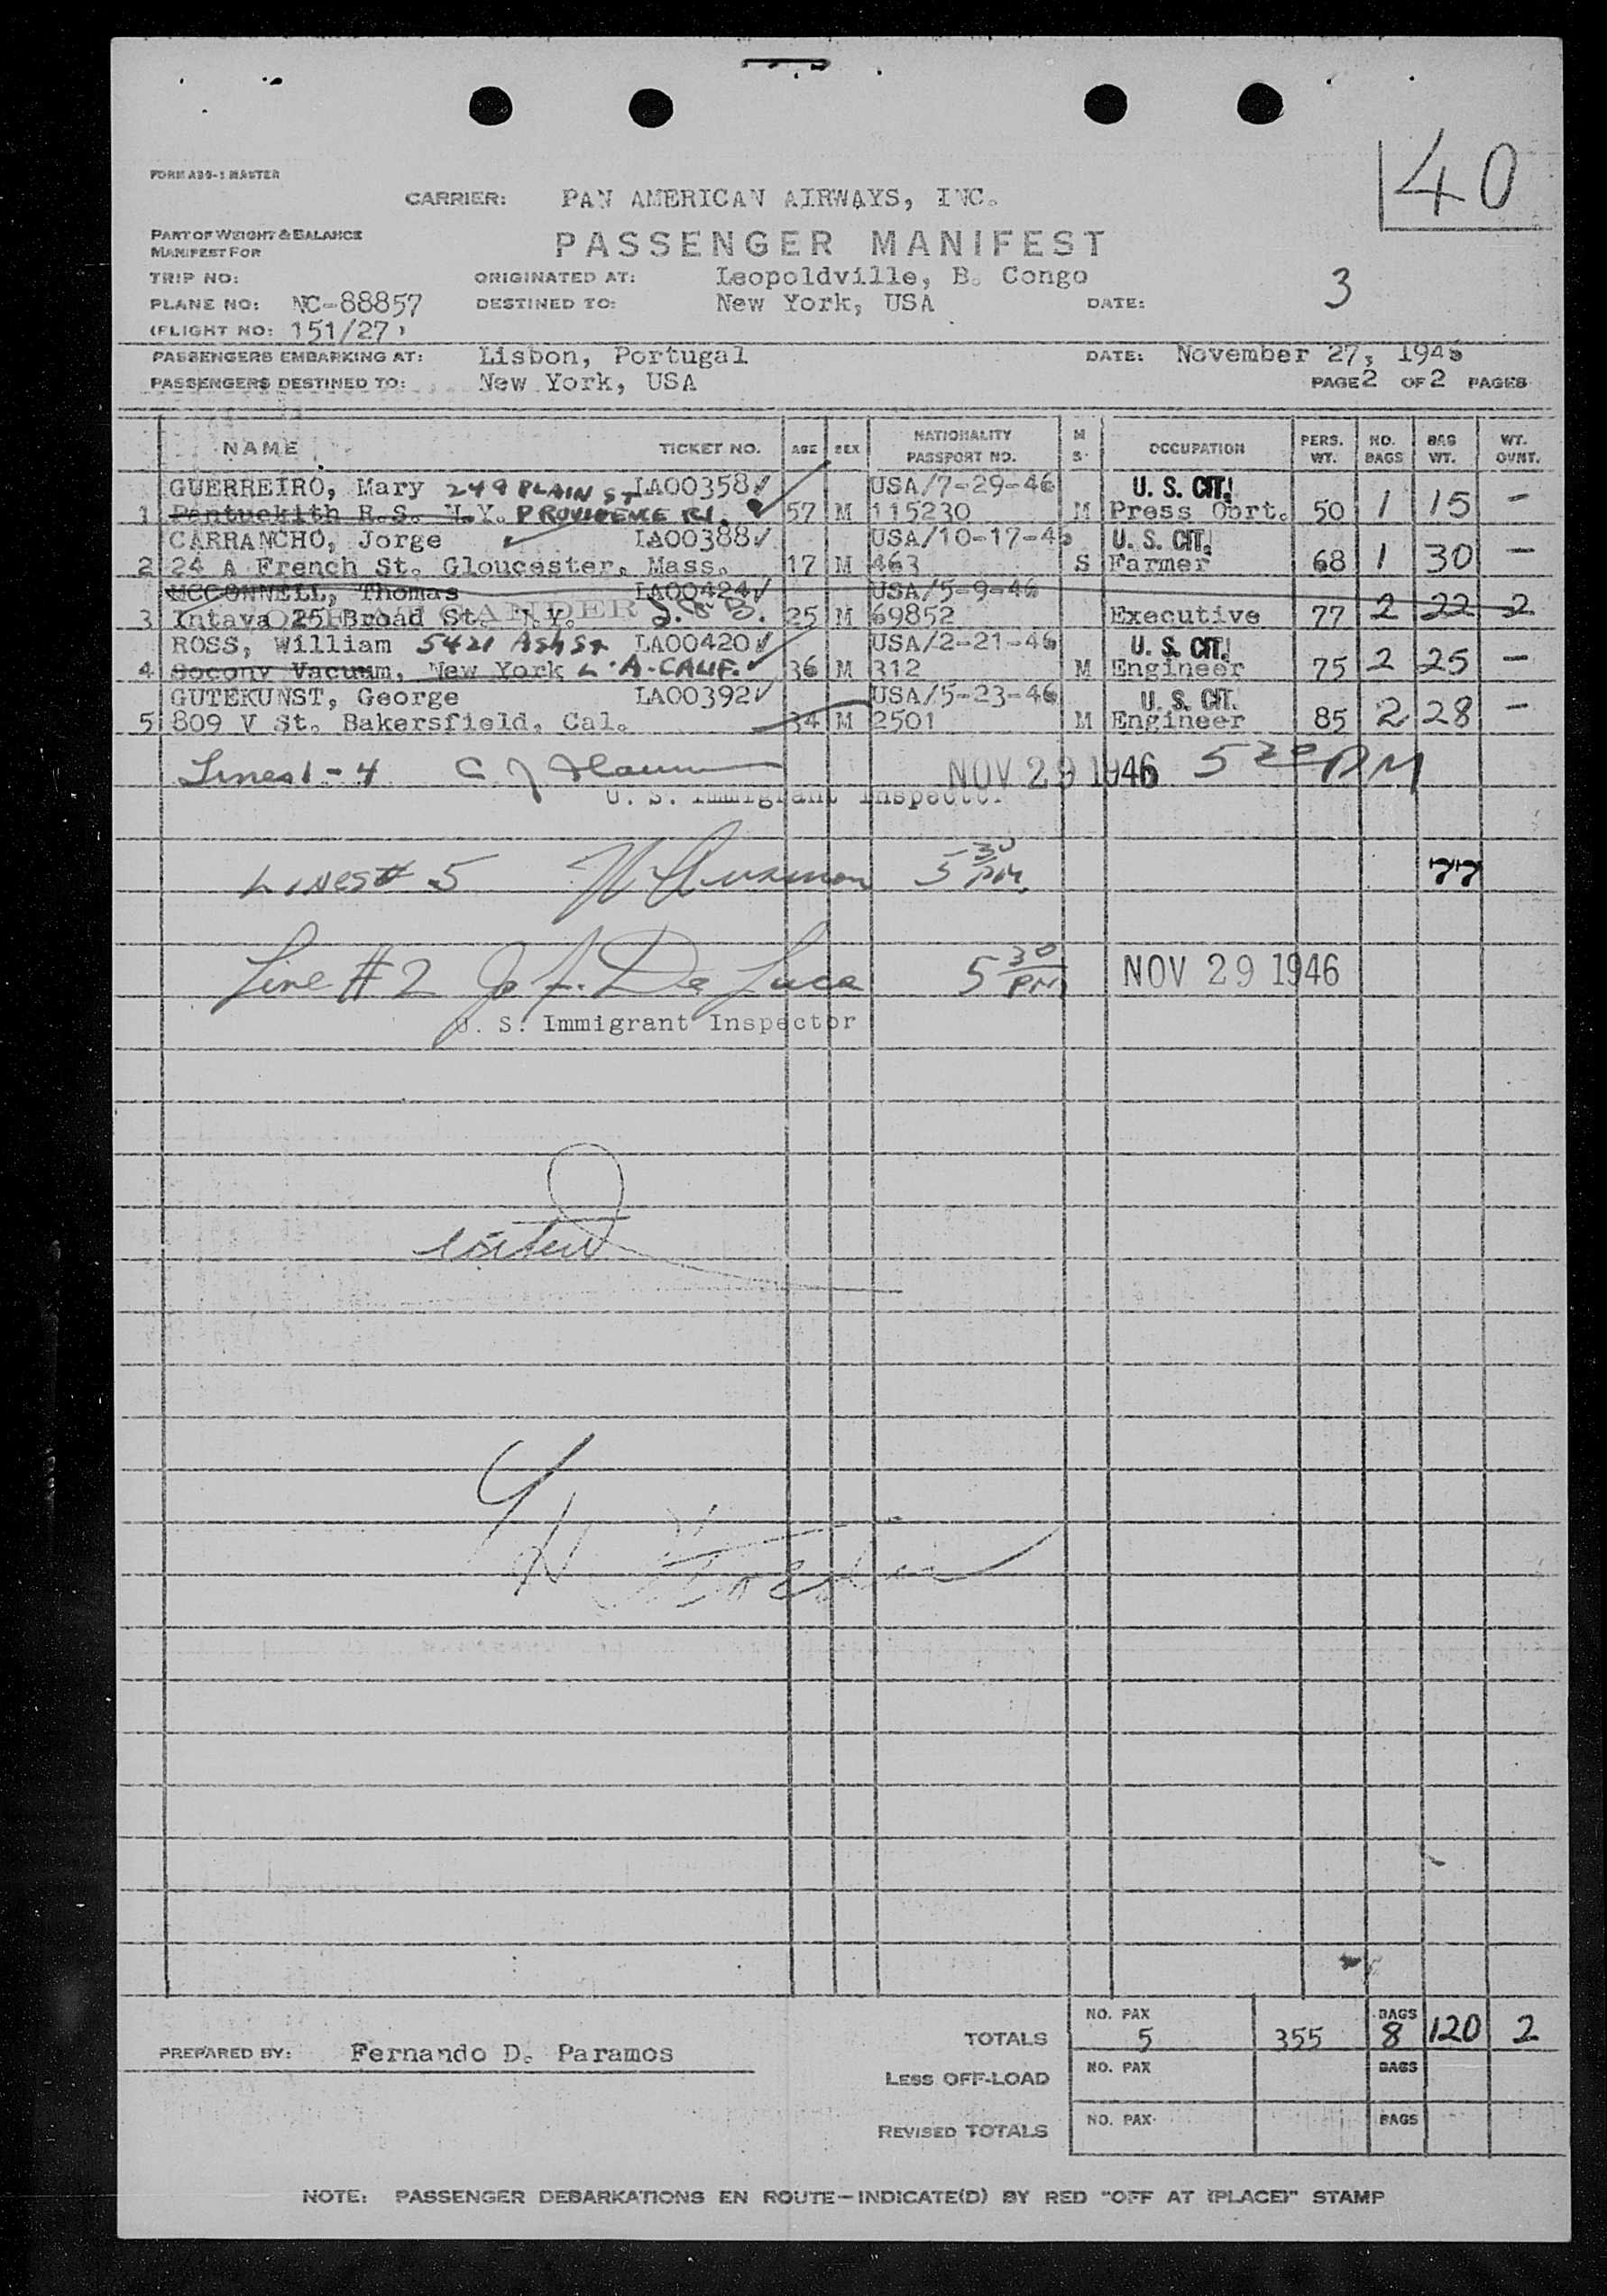 40
FORM A30-1 MASTER
CARRIER: PAN AMERICAN AIRWAYS, INC.
PART OF WEIGHT & BALANCE
MANIFEST FOR
PASSENGER MANIFEST
TRIP NO: ORIGINATED AT: Leopoldville, B. Congo
3
PLANE NO: NC-88857 DESTINED TO: New York, USA DATE:
(FLIGHT NO: 151/27)
PASSENGERS EMBARKING AT: Lisbon, Portugal DATE: November 27, 1946
PASSENGERS DESTINED TO: New York, USA PAGE 2 OF 2 PAGES
NAME TICKET NO. AGE SEX NATIONALITY PASSPORT NO. M S OCCUPATION PERS. WT. NO. BAGS BAG WT. WT. OVNT.
GUERREIRO, Mary 249 PLAIN ST LA00358 USA/7-29-46 U. S. CIT.
1 Pantuckith R.S. N.Y. PROVIDENCE RI. 57 M 115230 M Press Oort. 50 1 15 -
CARRANCHO, Jorge LA00388 USA/10-17-46 U. S. CIT.
2 24 A French St. Gloucester, Mass. 17 M 463 S Farmer 68 1 30 -
MCCONNELL, Thomas LA00424 USA/5-9-46
3 Intava 25 Broad St. N.Y. 25 M 69852 Executive 77 2 22 2
ROSS, William 5421 Ash St LA00420 USA/2-21-46 U. S. CIT.
4 Socony Vacuum, New York L.A. CALIF. 36 M 312 M Engineer 75 2 25 -
GUTEKUNST, George LA00392 USA/5-23-46 U. S. CIT.
5 809 V St. Bakersfield, Cal. 34 M 2501 M Engineer 85 2 28 -
Lines 1-4 NOV 29 1946 5 30 PM
U. S. Immigrant Inspector
LINES# 5 5 30 PM
77
Line #2 De Luca 5 30 PM NOV 29 1946
U. S. Immigrant Inspector
TOTALS NO. PAX 5 355 BAGS 8 120 2
PREPARED BY: Fernando D. Paramos
LESS OFF-LOAD NO. PAX BAGS
REVISED TOTALS NO. PAX BAGS
NOTE: PASSENGER DEBARKATIONS EN ROUTE—INDICATE(D) BY RED "OFF AT (PLACE)" STAMP